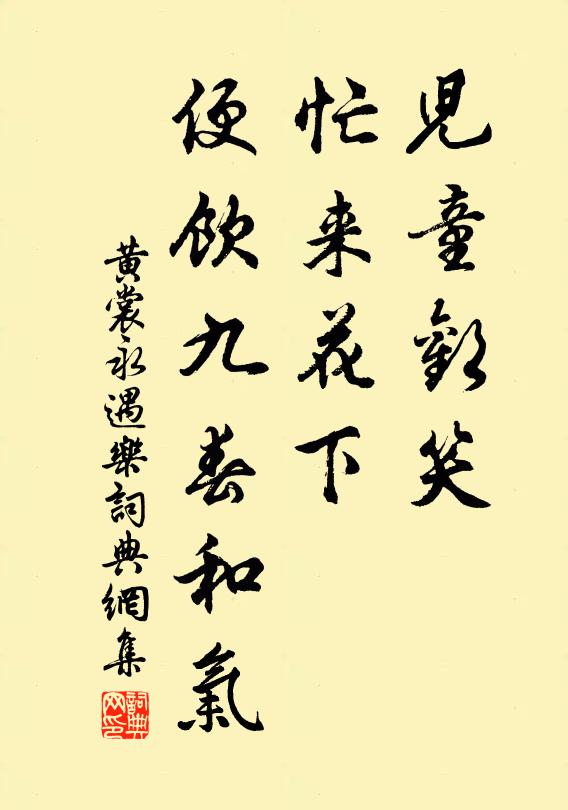 兒童歡笑
忙来花下
便飲九春和氣
黃裳永遇樂詞典網集
詞典网印